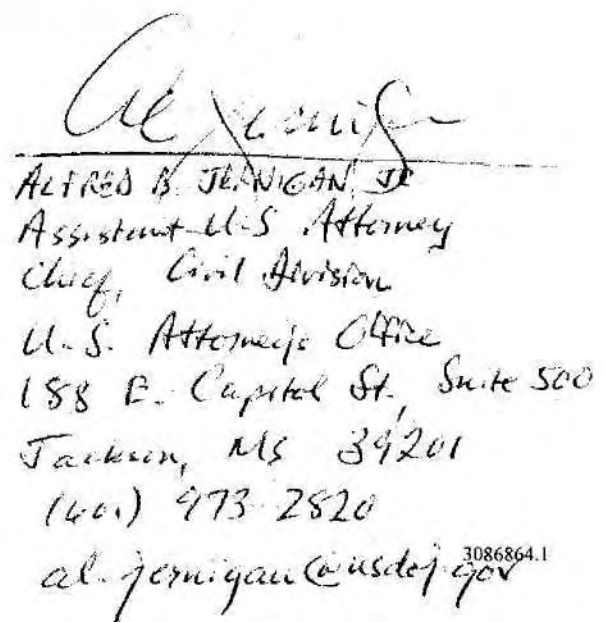 Al Jernigan
ALFRED B. JERNIGAN, JR
Assistant U.S Attorney
Chief, Civil Division
U.S. Attorney's Office
188 E. Capitol St., Suite 500
Jackson, MS 39201
(601) 973-2820
al.jernigan@usdoj.gov
3086864.1